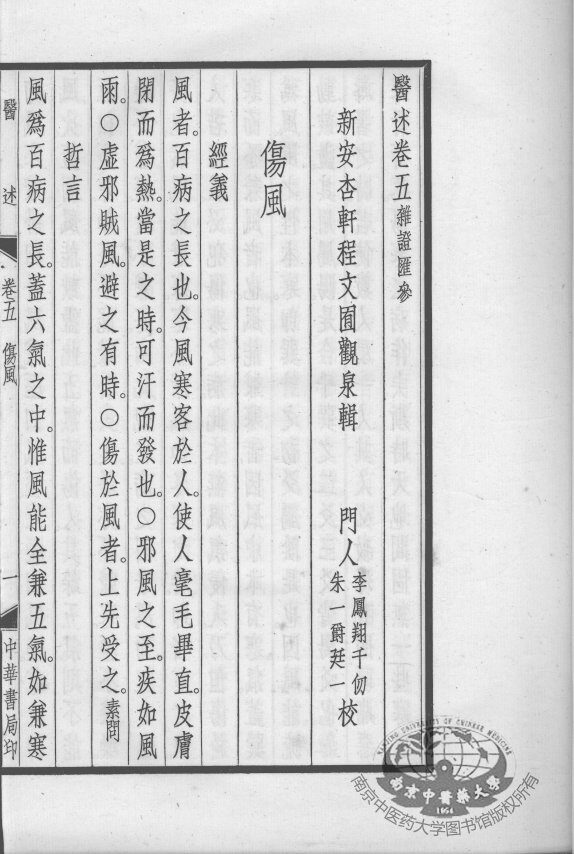 醫述卷五雜證匯參
新安杏軒程文囿觀泉輯 門人李鳳翔千仞朱一爵廷一校
傷風
經義
風者。百病之長也。今風寒客於人。使人毫毛畢直。皮膚
閉而爲熱。當是之時。可汗而發也。〇邪風之至。疾如風
雨。〇虛邪賊風。避之有時。〇傷於風者。上先受之。素問
哲言
風爲百病之長。蓋六氣之中。惟風能全兼五氣。如兼寒
醫述 卷五 傷風 一 中華書局印
NANJING UNIVERSITY OF CHINESE MEDICINE
南京中醫藥大學
1954
南京中医药大学图书馆版权所有